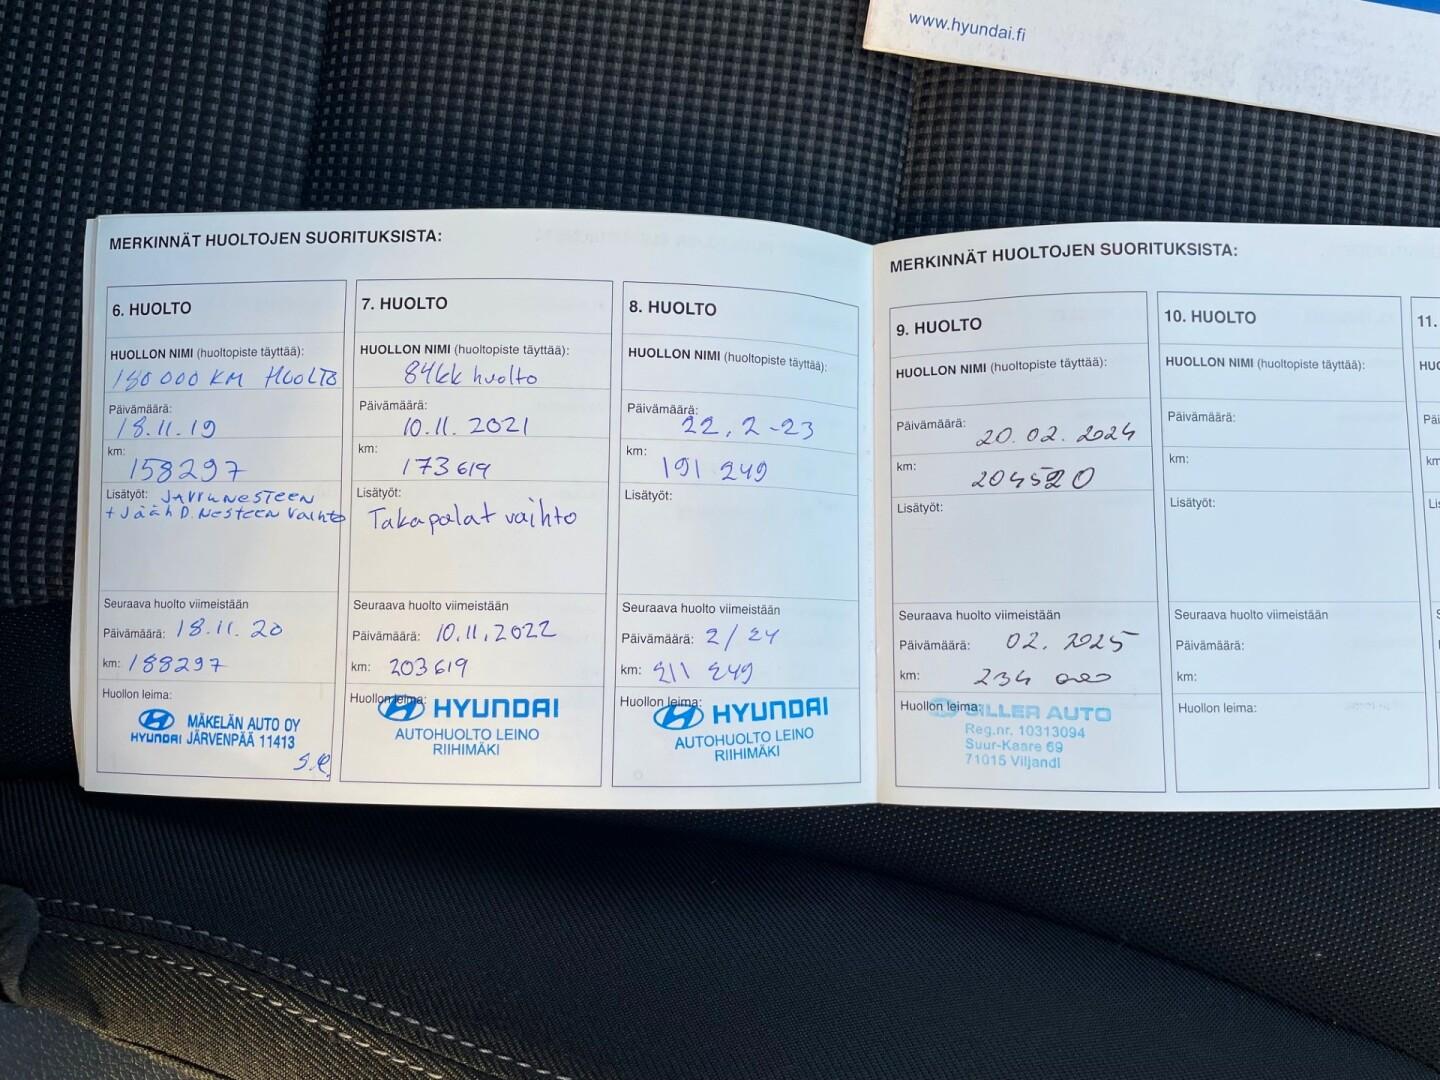 www.hyundai.fi
MERKINNÄT HUOLTOJEN SUORITUKSISTA:
6. HUOLTO
HUOLLON NIMI (huoltopiste täyttää):
180 000 KM HUOLTO
Päivämäärä:
18.11.19
km:
158297
Lisätyöt: Jarrunesteen
+ Jääh D. Nesteen vaihto
Seuraava huolto viimeistään
Päivämäärä: 18.11.20
km: 188297
Huollon leima:
MÄKELÄN AUTO OY
HYUNDAI JÄRVENPÄÄ 11413
7. HUOLTO
HUOLLON NIMI (huoltopiste täyttää):
84kk huolto
Päivämäärä:
10.11.2021
km:
173619
Lisätyöt:
Takapalat vaihto
Seuraava huolto viimeistään
Päivämäärä: 10.11.2022
km: 203619
Huollon leima:
HYUNDAI
AUTOHUOLTO LEINO
RIIHIMÄKI
8. HUOLTO
HUOLLON NIMI (huoltopiste täyttää):
Päivämäärä:
22.2-23
km:
191 249
Lisätyöt:
Seuraava huolto viimeistään
Päivämäärä: 2/24
km: 211 249
Huollon leima:
HYUNDAI
AUTOHUOLTO LEINO
RIIHIMÄKI
MERKINNÄT HUOLTOJEN SUORITUKSISTA:
9. HUOLTO
HUOLLON NIMI (huoltopiste täyttää):
Päivämäärä:
20.02.2024
km:
204520
Lisätyöt:
Seuraava huolto viimeistään
Päivämäärä: 02.2025
km: 234 000
Huollon leima:
SILLER AUTO
Reg.nr. 10313094
Suur-Kaare 69
71015 Viljandi
10. HUOLTO
HUOLLON NIMI (huoltopiste täyttää):
Päivämäärä:
km:
Lisätyöt:
Seuraava huolto viimeistään
Päivämäärä:
km:
Huollon leima:
11.
km